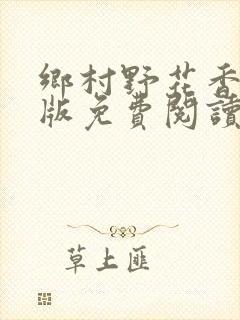 鄉村野花香
版免費閱讀
草上匪